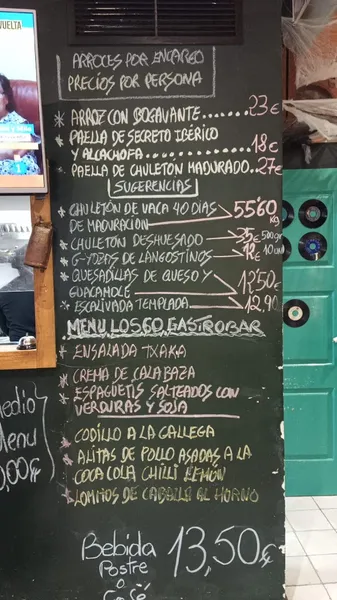 VUELTA
ARROCES POR ENCARGO
PRECIOS POR PERSONA
* ARROZ CON BOGAVANTE...... 23€
* PAELLA DE SECRETO IBÉRICO
Y ALCACHOFA ......... 18€
* PAELLA DE CHULETÓN MADURADO.. 27€
SUGERENCIAS
* CHULETÓN DE VACA 40 DIAS 55'60
DE MADURACIÓN KG
* CHULETON DESHUESADO 35€ 500g
* GYOZAS DE LANGOSTINOS 12€
* QUESADILLAS DE QUESO Y
GUACAMOLE 12'50€
* ESCALIVADA TEMPLADA 12,90
MENU LOS 60 GASTROBAR
* ENSALADA TXAKA
* CREMA DE CALABAZA
* ESPAGUETIS SALTEADOS CON
VERDURAS Y SOJA
* CODILLO A LA GALLEGA
* ALITAS DE POLLO ASADAS A LA
COCA COLA CHILLI LIMÓN
* LOMITOS DE CABALLA AL HORNO
Medio
Menu
Bebida 13,50€
Postre
o
Café